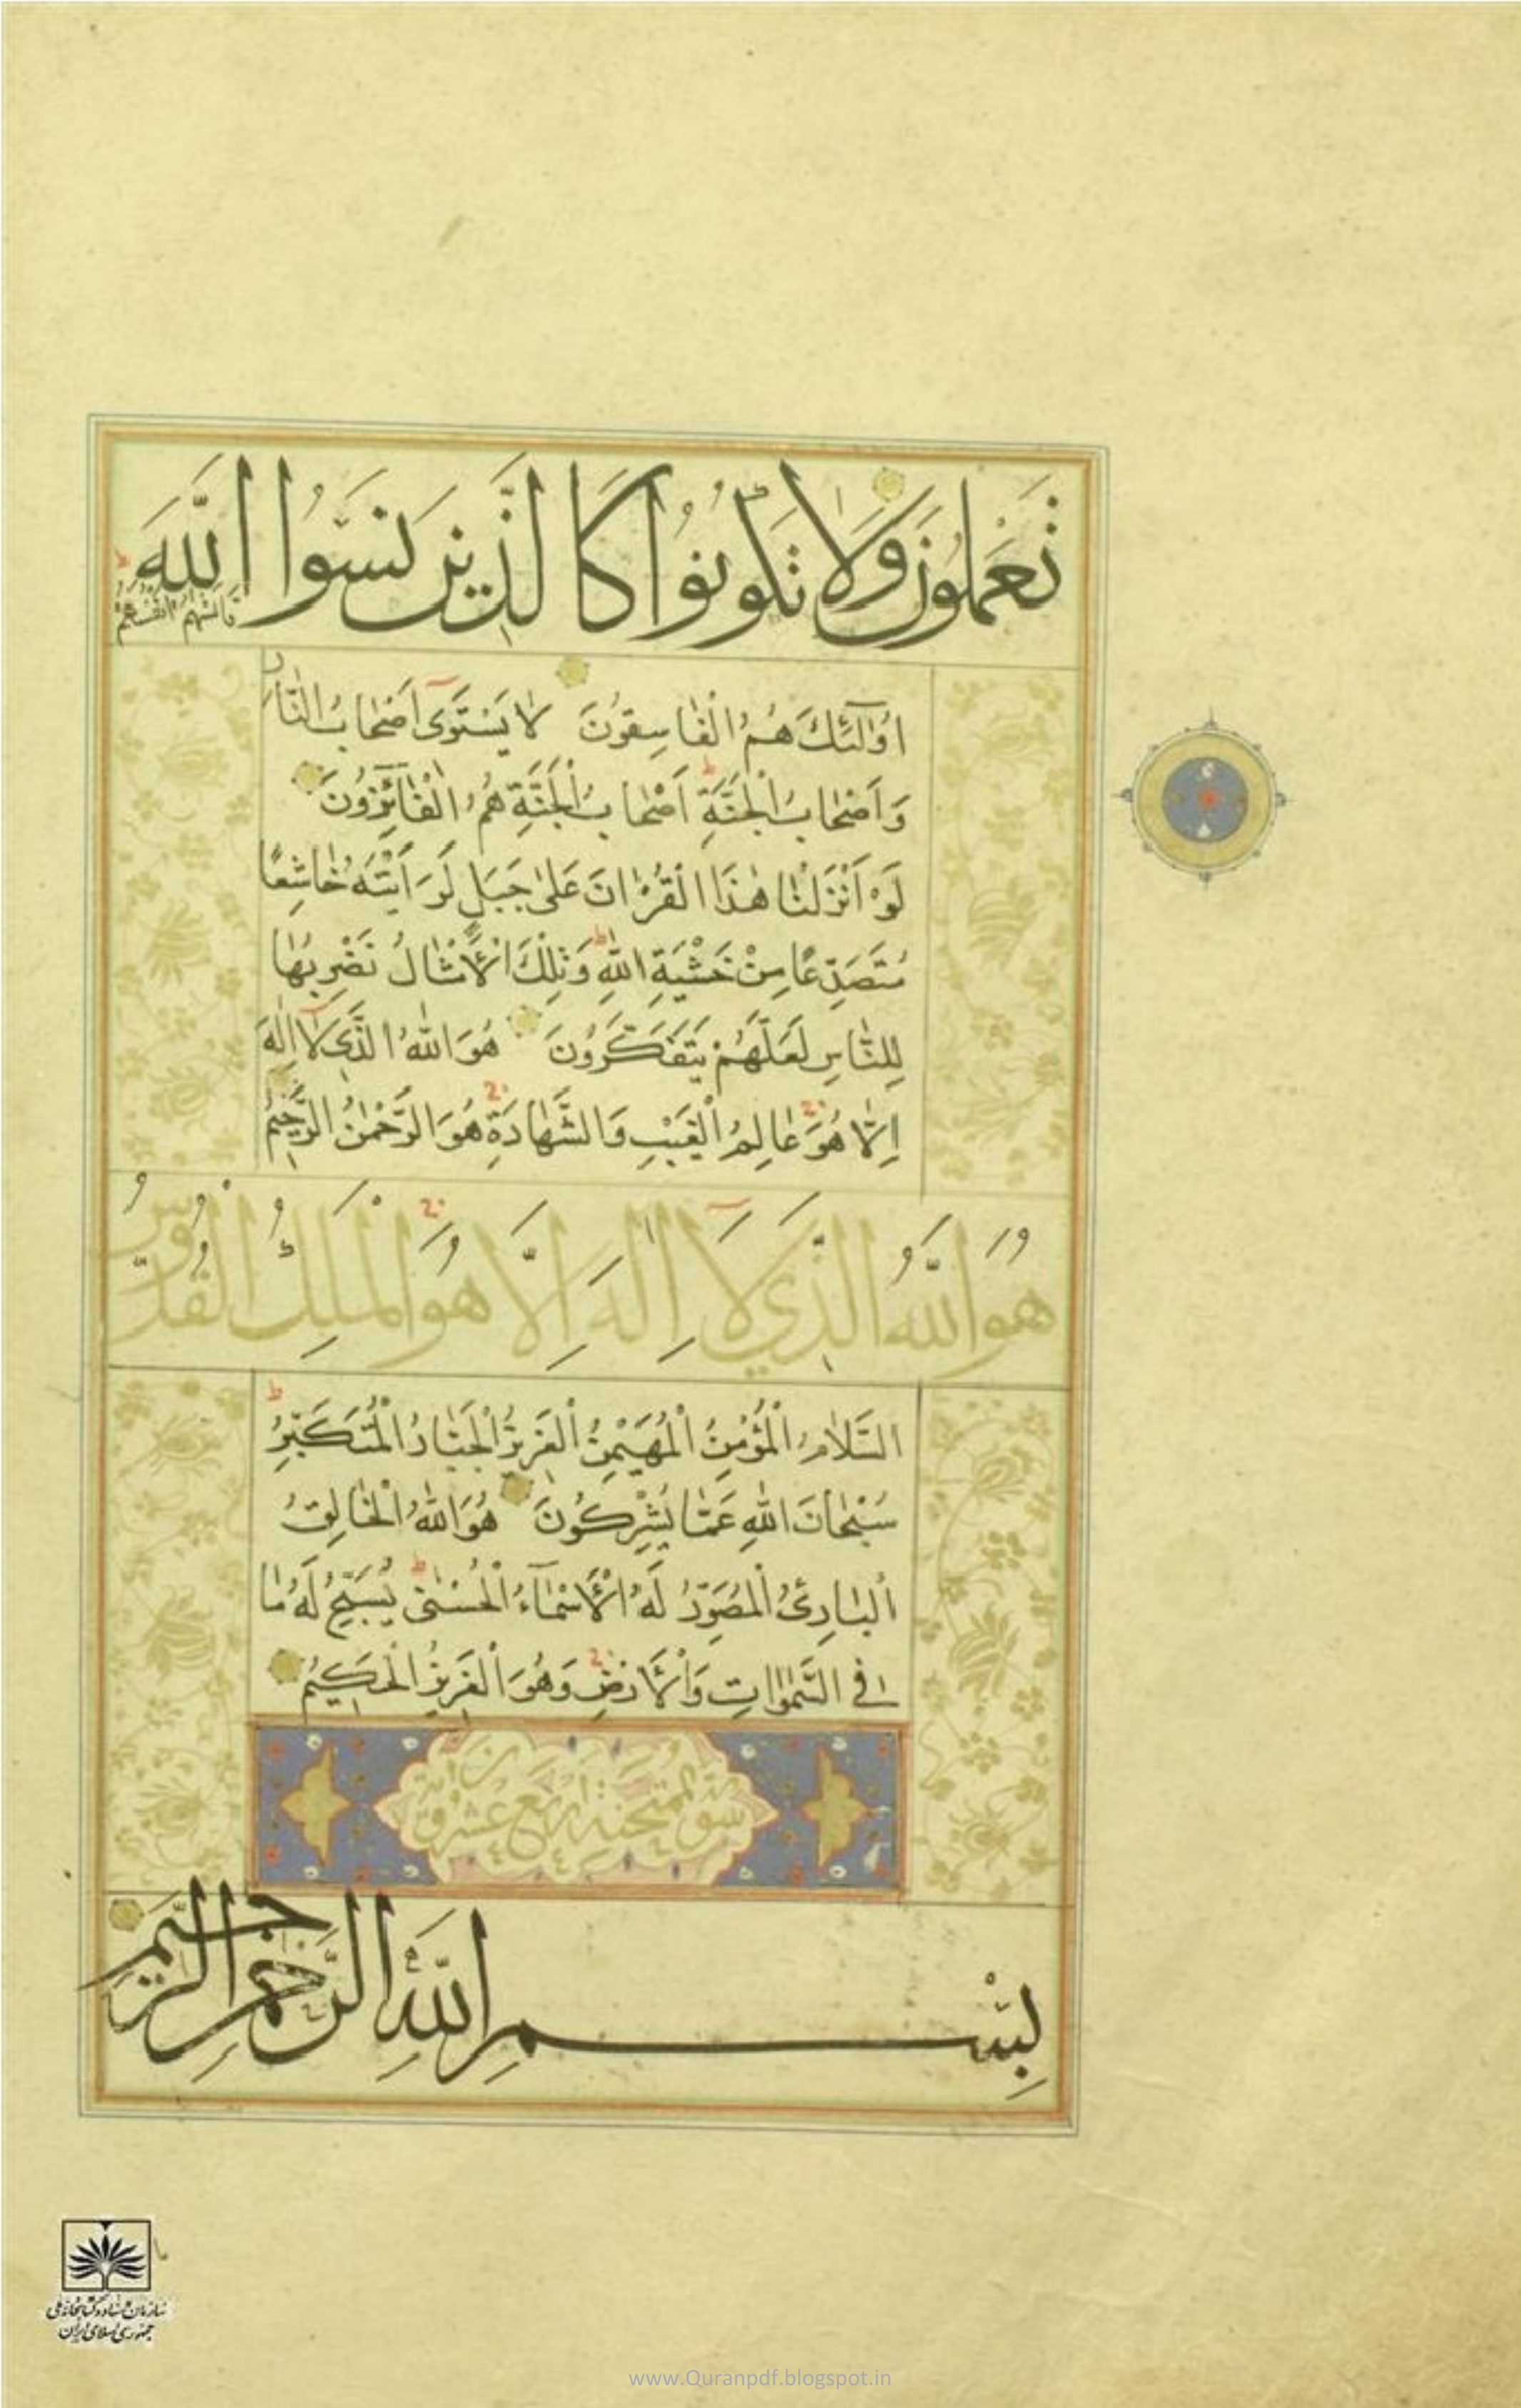 تَعْمَلُونَ وَلَا تَكُونُوا كَالَّذِينَ نَسُوا اللَّهَ
فَأَنْسٰيهُمْ أَنْفُسَهُمْ
اُولٰٓئِكَ هُمُ الْفٰاسِقُونَ لاٰ يَسْتَوِى اَصْحٰابُ النّٰارِ
وَاَصْحٰابُ الْجَنَّةِ اَصْحٰابُ الْجَنَّةِ هُمُ الْفٰآئِزُونَ
لَوْ اَنْزَلْنٰا هٰذَا الْقُرْاٰنَ عَلٰى جَبَلٍ لَرَاَيْتَهُ خٰاشِعًا
مُتَصَدِّعًا مِنْ خَشْيَةِ اللهِ وَتِلْكَ الْاَمْثٰالُ نَضْرِبُهٰا
لِلنّٰاسِ لَعَلَّهُمْ يَتَفَكَّرُونَ هُوَ اللهُ الَّذِى لاٰ اِلٰهَ
اِلّٰا هُوَ عٰالِمُ الْغَيْبِ وَالشَّهٰادَةِ هُوَ الرَّحْمٰنُ الرَّحِيمُ
هُوَ اللَّهُ الَّذِي لَا إِلَهَ إِلَّا هُوَ الْمَلِكُ الْقُدُّوسُ
السَّلاٰمُ الْمُؤْمِنُ الْمُهَيْمِنُ الْعَزِيزُ الْجَبّٰارُ الْمُتَكَبِّرُ
سُبْحٰانَ اللهِ عَمّٰا يُشْرِكُونَ هُوَ اللهُ الْخٰالِقُ
الْبٰارِئُ الْمُصَوِّرُ لَهُ الْاَسْمٰآءُ الْحُسْنٰى يُسَبِّحُ لَهُ مٰا
فِى السَّمٰوٰاتِ وَالْاَرْضِ وَهُوَ الْعَزِيزُ الْحَكِيمُ
سورة الممتحنة اربع عشرة آية
بِسْمِ اللَّهِ الرَّحْمَنِ الرَّحِيمِ
سازمان اسناد و کتابخانه ملی
جمهوری اسلامی ایران
www.Quranpdf.blogspot.in